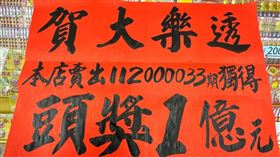 賀大樂透
本店賣出112000033期獨得
頭獎1億元